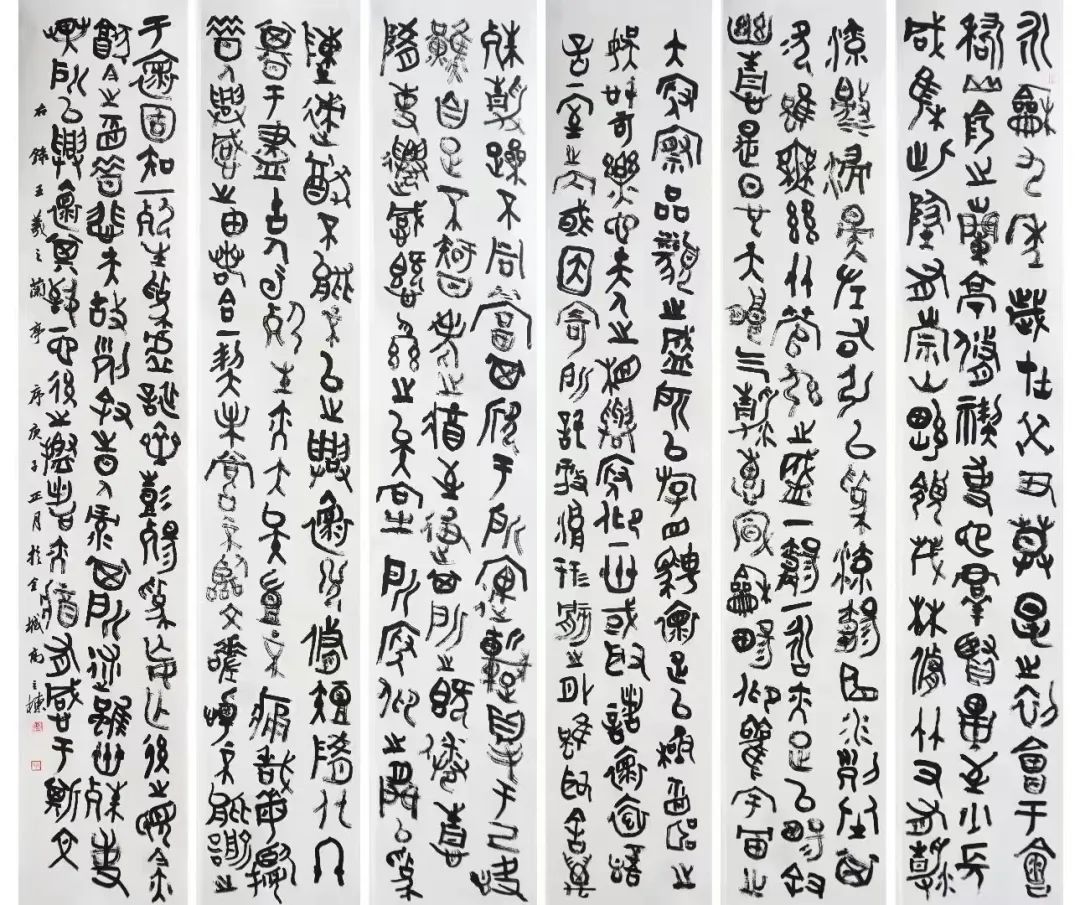 永龢九年歲在癸丑莫春之初會于會
稽山陰之蘭亭脩禊事也群賢畢至少長
咸集此地有崇山峻領茂林脩竹又有清
流激湍映帶左右引以為流觴曲水列坐其
次雖無絲竹管弦之盛一觴一詠亦足以暢敘
幽情是日也天朗氣清惠風龢暢仰觀宇宙之
大俯察品類之盛所以游目騁懷足以極視聽之
娛信可樂也夫人之相與俯仰一世或取諸懷抱悟
言一室之內或因寄所託放浪形骸之外雖取舍萬
殊靜躁不同當其欣于所遇暫得于己快
然自足不知老之將至及其所之既倦情
隨事遷感慨係之矣向之所欣俛仰之間以為
陳迹猶不能不以之興懷況脩短隨化終
期于盡古人云死生亦大矣豈不痛哉每攬
昔人興感之由若合一契未嘗不臨文嗟悼不能喻之
于懷固知一死生為虛誕齊彭殤為妄作後之視今亦
猶今之視昔悲夫故列敘時人錄其所述雖世殊事
異所以興懷其致一也後之攬者亦將有感于斯文
右錄王羲之蘭亭序庚子正月於金城